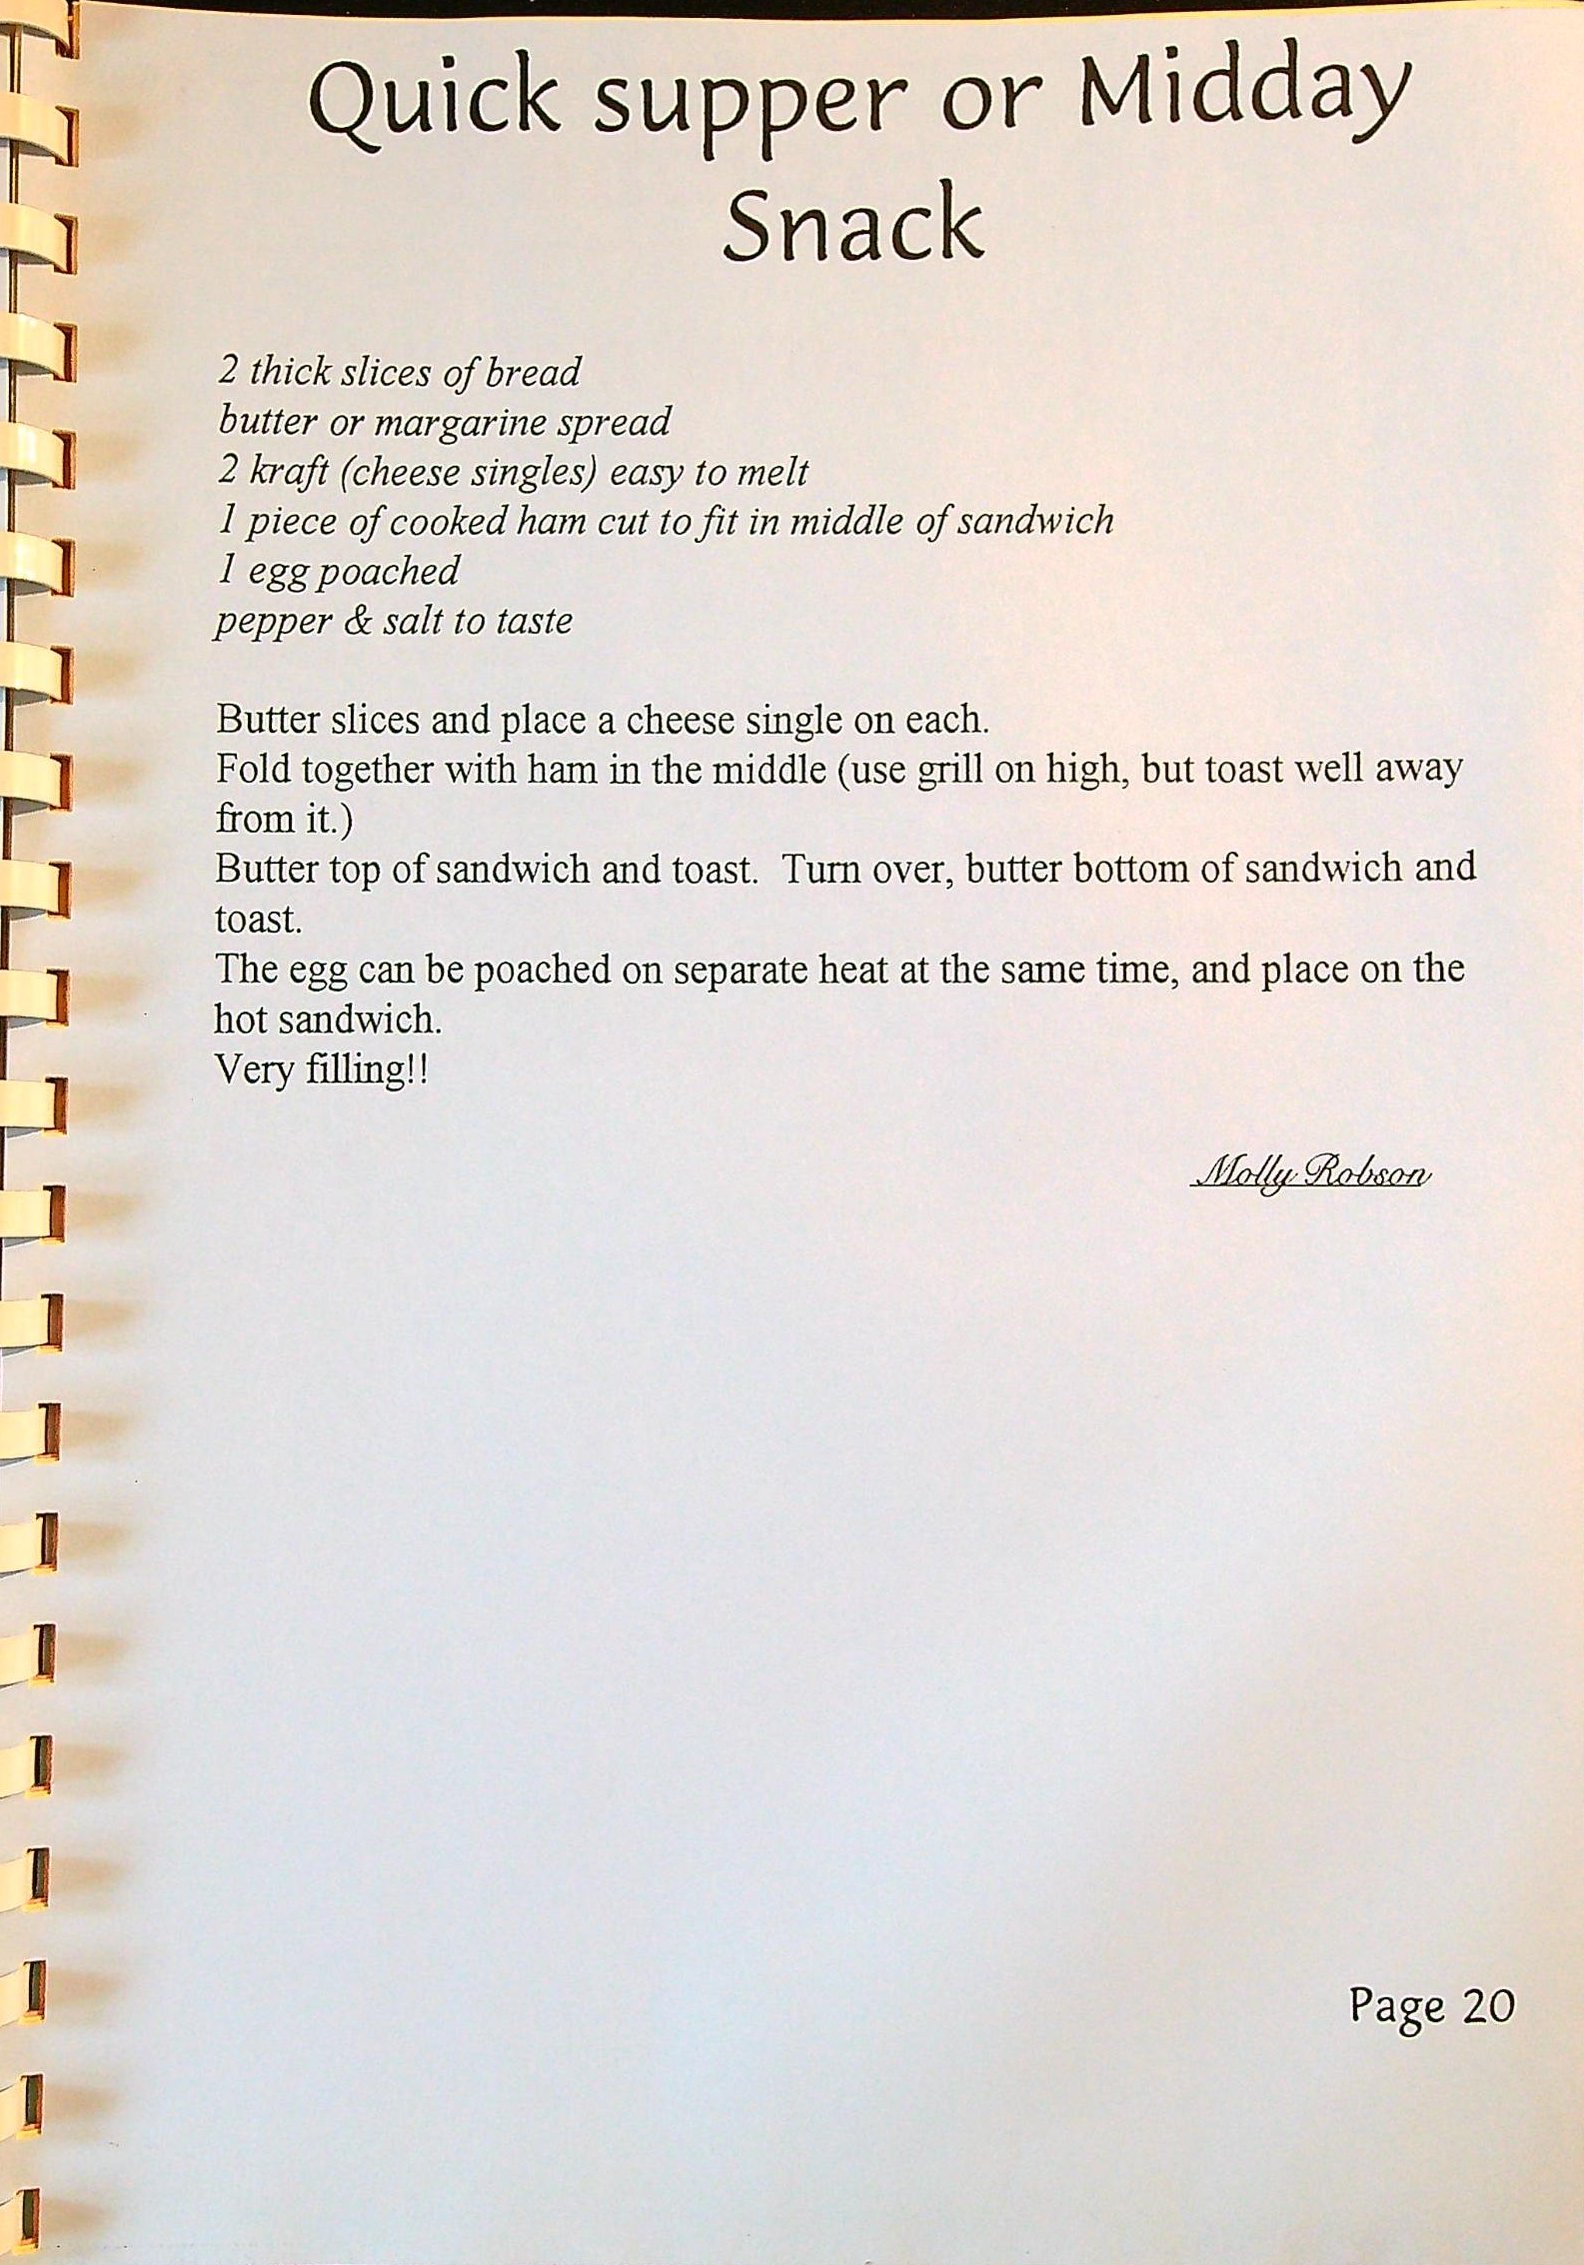 Quick supper or Midday
Snack
2 thick slices of bread
butter or margarine spread
2 kraft (cheese singles) easy to melt
1 piece of cooked ham cut to fit in middle of sandwich
1 egg poached
pepper & salt to taste
Butter slices and place a cheese single on each.
Fold together with ham in the middle (use grill on high, but toast well away
from it.)
Butter top of sandwich and toast.  Turn over, butter bottom of sandwich and
toast.
The egg can be poached on separate heat at the same time, and place on the
hot sandwich.
Very filling!!
Molly Robson
Page 20